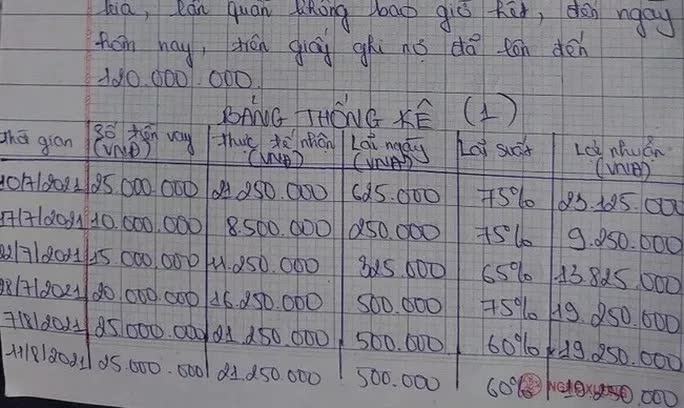 kia, lẩn quẩn không bao giờ hết, đến ngay
hôm nay, tiền giấy ghi nợ đã lên đến
120.000.000.
BẢNG THỐNG KÊ (1)
thời gian | Số tiền vay (VNĐ) | thực tế nhận (VNĐ) | Lãi ngày (VNĐ) | Lãi suất | Lợi nhuận (VNĐ)
10/7/2021 | 25.000.000 | 21.250.000 | 625.000 | 75% | 23.125.000
17/7/2021 | 10.000.000 | 8.500.000 | 250.000 | 75% | 9.250.000
22/7/2021 | 15.000.000 | 11.250.000 | 325.000 | 65% | 13.825.000
28/7/2021 | 20.000.000 | 16.250.000 | 500.000 | 75% | 19.250.000
7/8/2021 | 25.000.000 | 21.250.000 | 500.000 | 60% | 19.250.000
11/8/2021 | 25.000.000 | 21.250.000 | 500.000 | 60% | 19.250.000